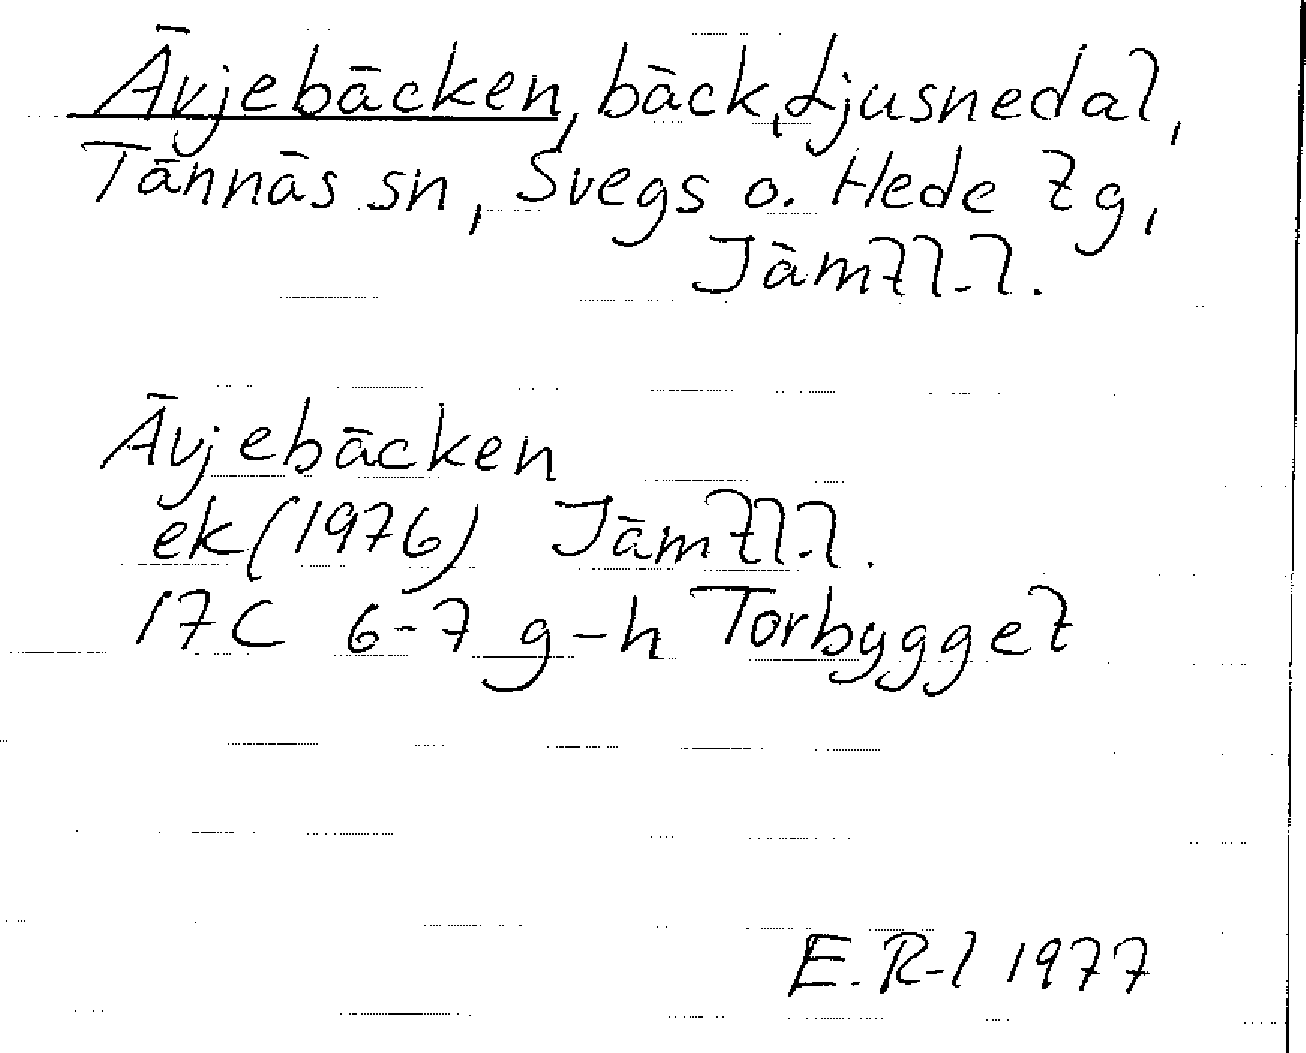 Ävjebäcken, bäck, Ljusnedal,
Tännäs sn, Svegs o. Hede tg,
Jämtl. l.
Ävjebäcken
ek (1976) Jämtl. l.
17C 6-7 g-h Torbygget
E. R-l 1977